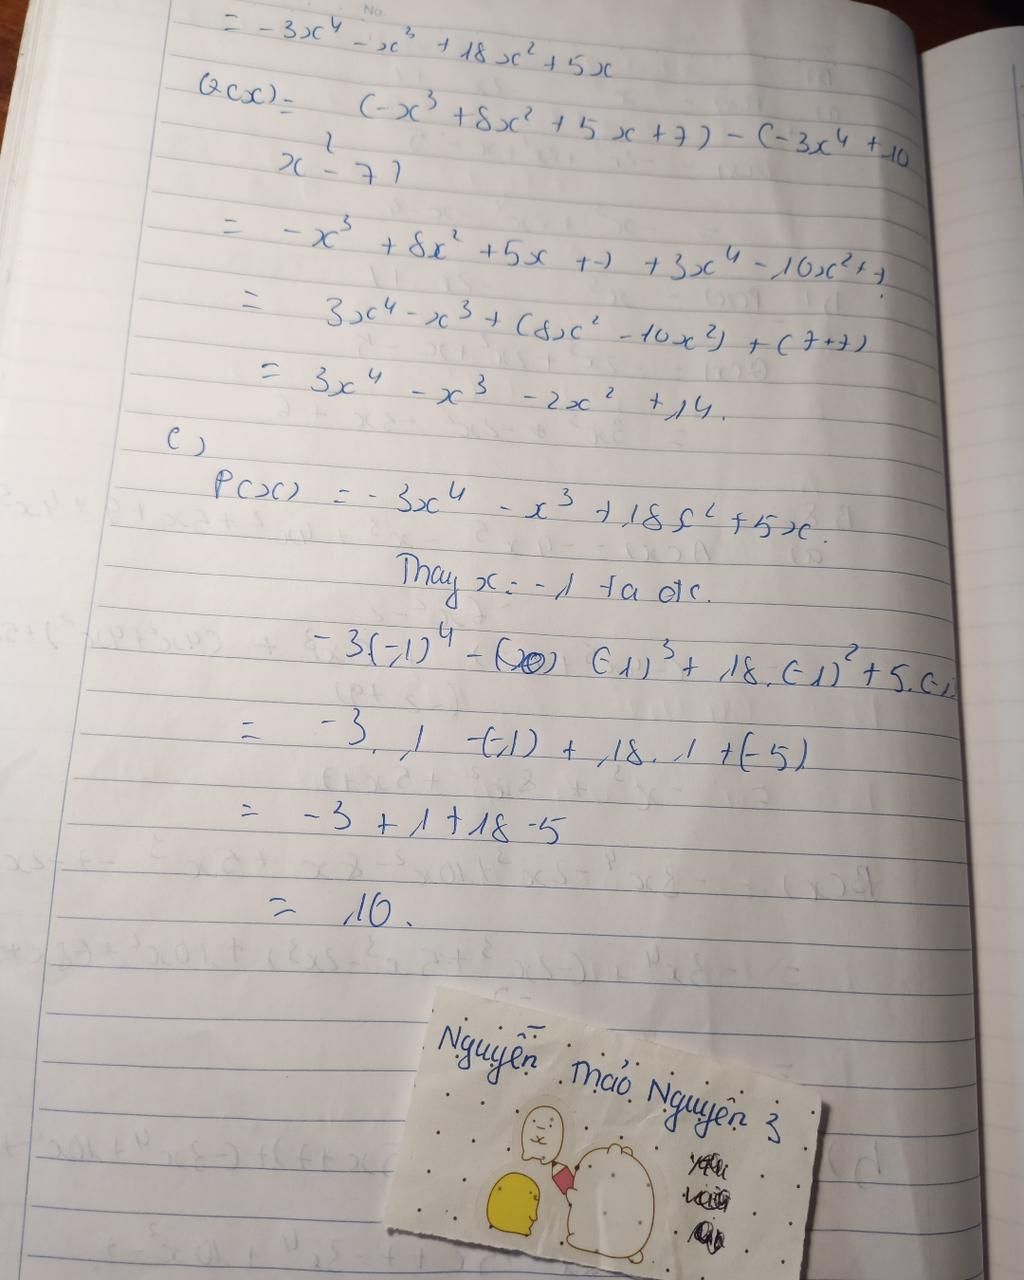 No.
= -3x⁴ - x³ + 18x² + 5x
Q(x) = (-x³ + 8x² + 5x + 7) - (-3x⁴ + 10
x² - 7)
= -x³ + 8x² + 5x + 7 + 3x⁴ - 10x² + 7
= 3x⁴ - x³ + (8x² - 10x²) + (7+7)
= 3x⁴ - x³ - 2x² + 14.
c)
P(x) = -3x⁴ - x³ + 18x² + 5x.
Thay x = -1 ta đc.
-3(-1)⁴ - (-1)³ + 18.(-1)² + 5.(-1
= -3.1 -(-1) + 18.1 + (-5)
= -3 + 1 + 18 - 5
= 10.
Nguyễn Thảo Nguyên 3